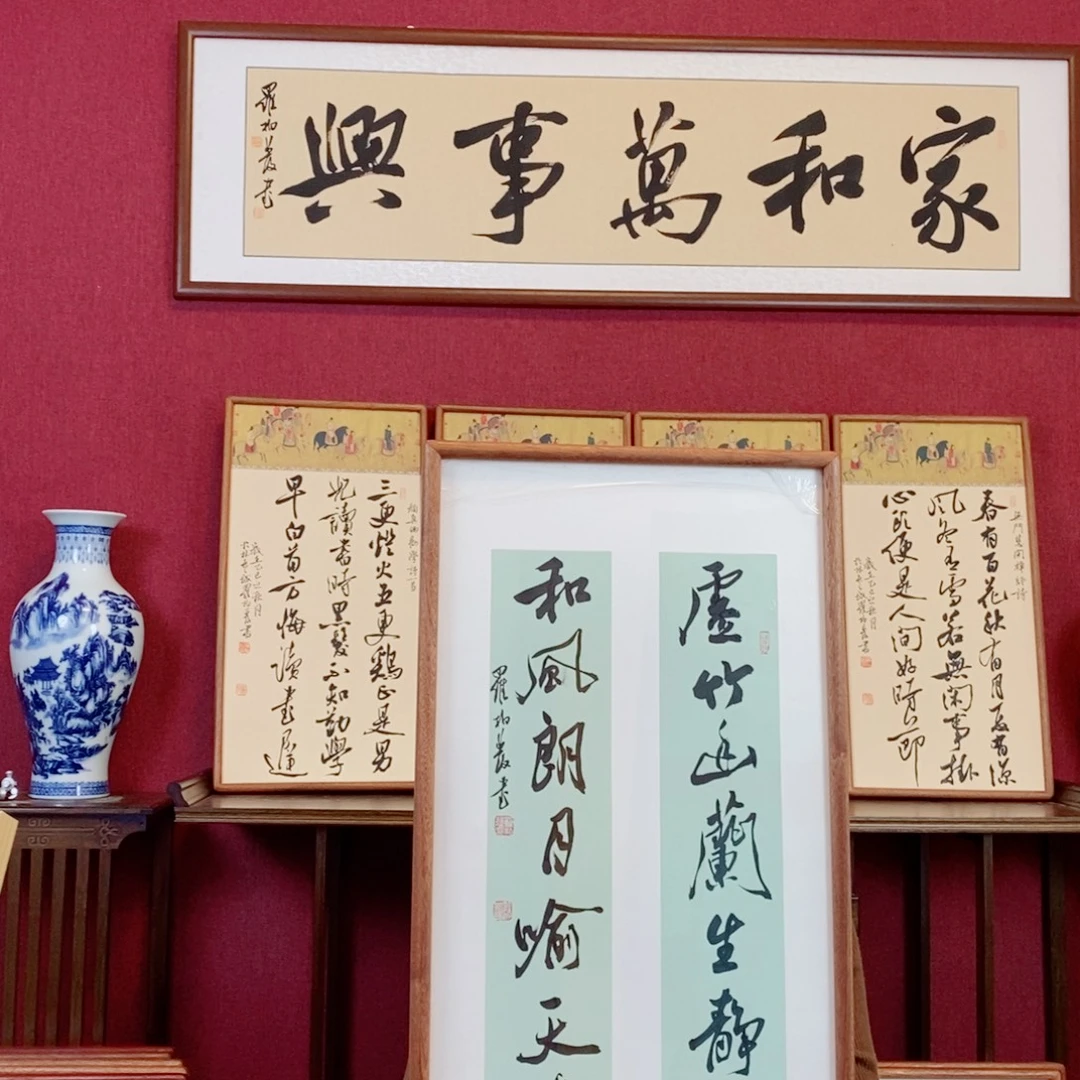 家和萬事興
羅書
顏真卿勸學詩一首
三更燈火五更鷄正是男
兒讀書時黑髮不知勤學
早白首方悔讀書遲
歲在乙巳之秋月
虛竹幽蘭生靜
和風朗月喻天
羅書
無門慧開禪師詩
春有百花秋有月夏有涼
風冬有雪若無閑事掛
心頭便是人間好時節
歲在乙巳之秋月